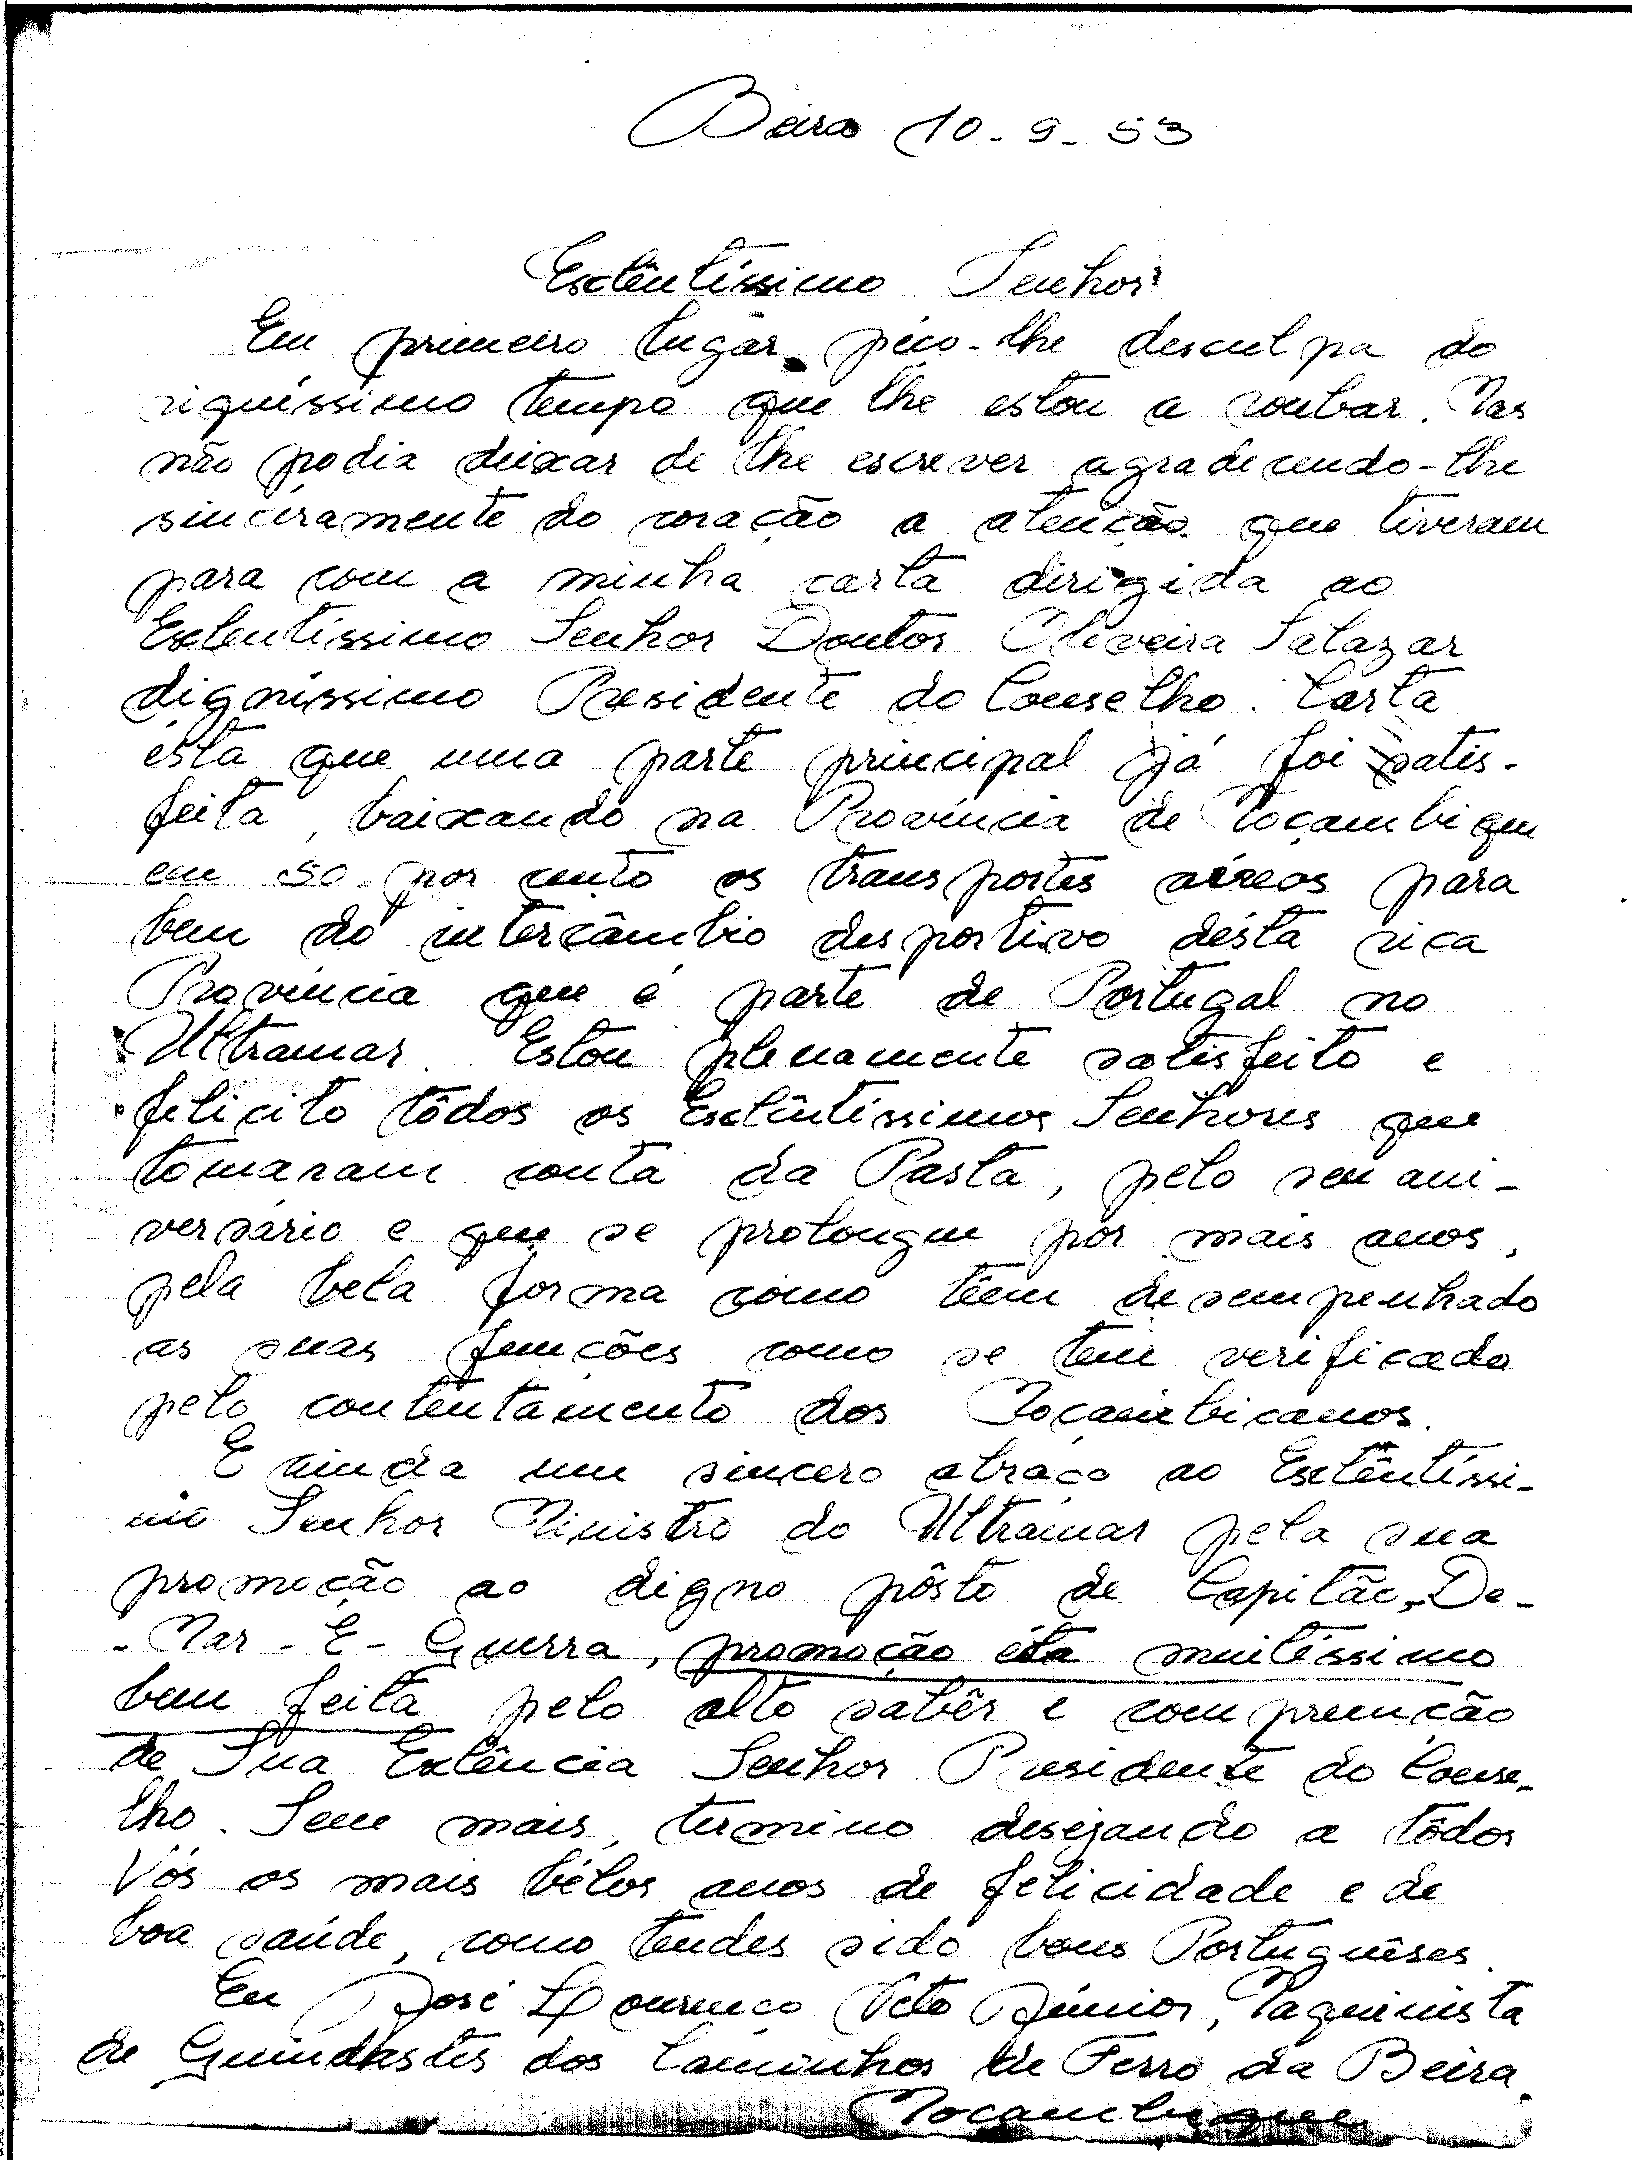 Beira 10-9-53
Exlêntíssimo Senhor
Em primeiro lugar, péço-lhe desculpa do
riquíssimo tempo que lhe estou a roubar. Mas
não podia deixar de lhe escrever agradecendo-lhe
sinceramente do coração a atenção que tiveram
para com a minha carta dirigida ao
Exlentíssimo Senhor Doutor Oliveira Salazar
digníssimo Presidente do Conselho. Carta
ésta que uma parte principal já foi satis-
feita, baixando na Província de Moçambique
em 50 por cento os transportes aéreos para
bem do intercâmbio desportivo désta rica
Província que é parte de Portugal no
Ultramar. Estou plenamente satisfeito e
felicito tôdos os Exlêntíssimos Senhores que
tomaram conta da Pasta, pelo seu ani-
versário e que se prolongue por mais anos,
pela bela forma como têem desempenhado
as suas funções como se tem verificado
pelo contentamento dos Moçambicanos.
E ainda um sincero abraço ao Exlêntíssi-
mo Senhor Ministro do Ultramar pela sua
promoção ao digno pôsto de Capitão-De-
-Mar-E-Guerra, promoção ésta muitíssimo
bem feita pelo alto sabêr e compreenção
de Sua Exlência Senhor Presidente do Conse-
lho. Sem mais, termino desejando a tôdos
Vós os mais bélos anos de felicidade e de
boa saúde, como tendes sido bons Portuguêses.
Eu José Lourenço Neto Júnior, Maquinista
de Guindastes dos Caminhos de Ferro da Beira.
Moçambique